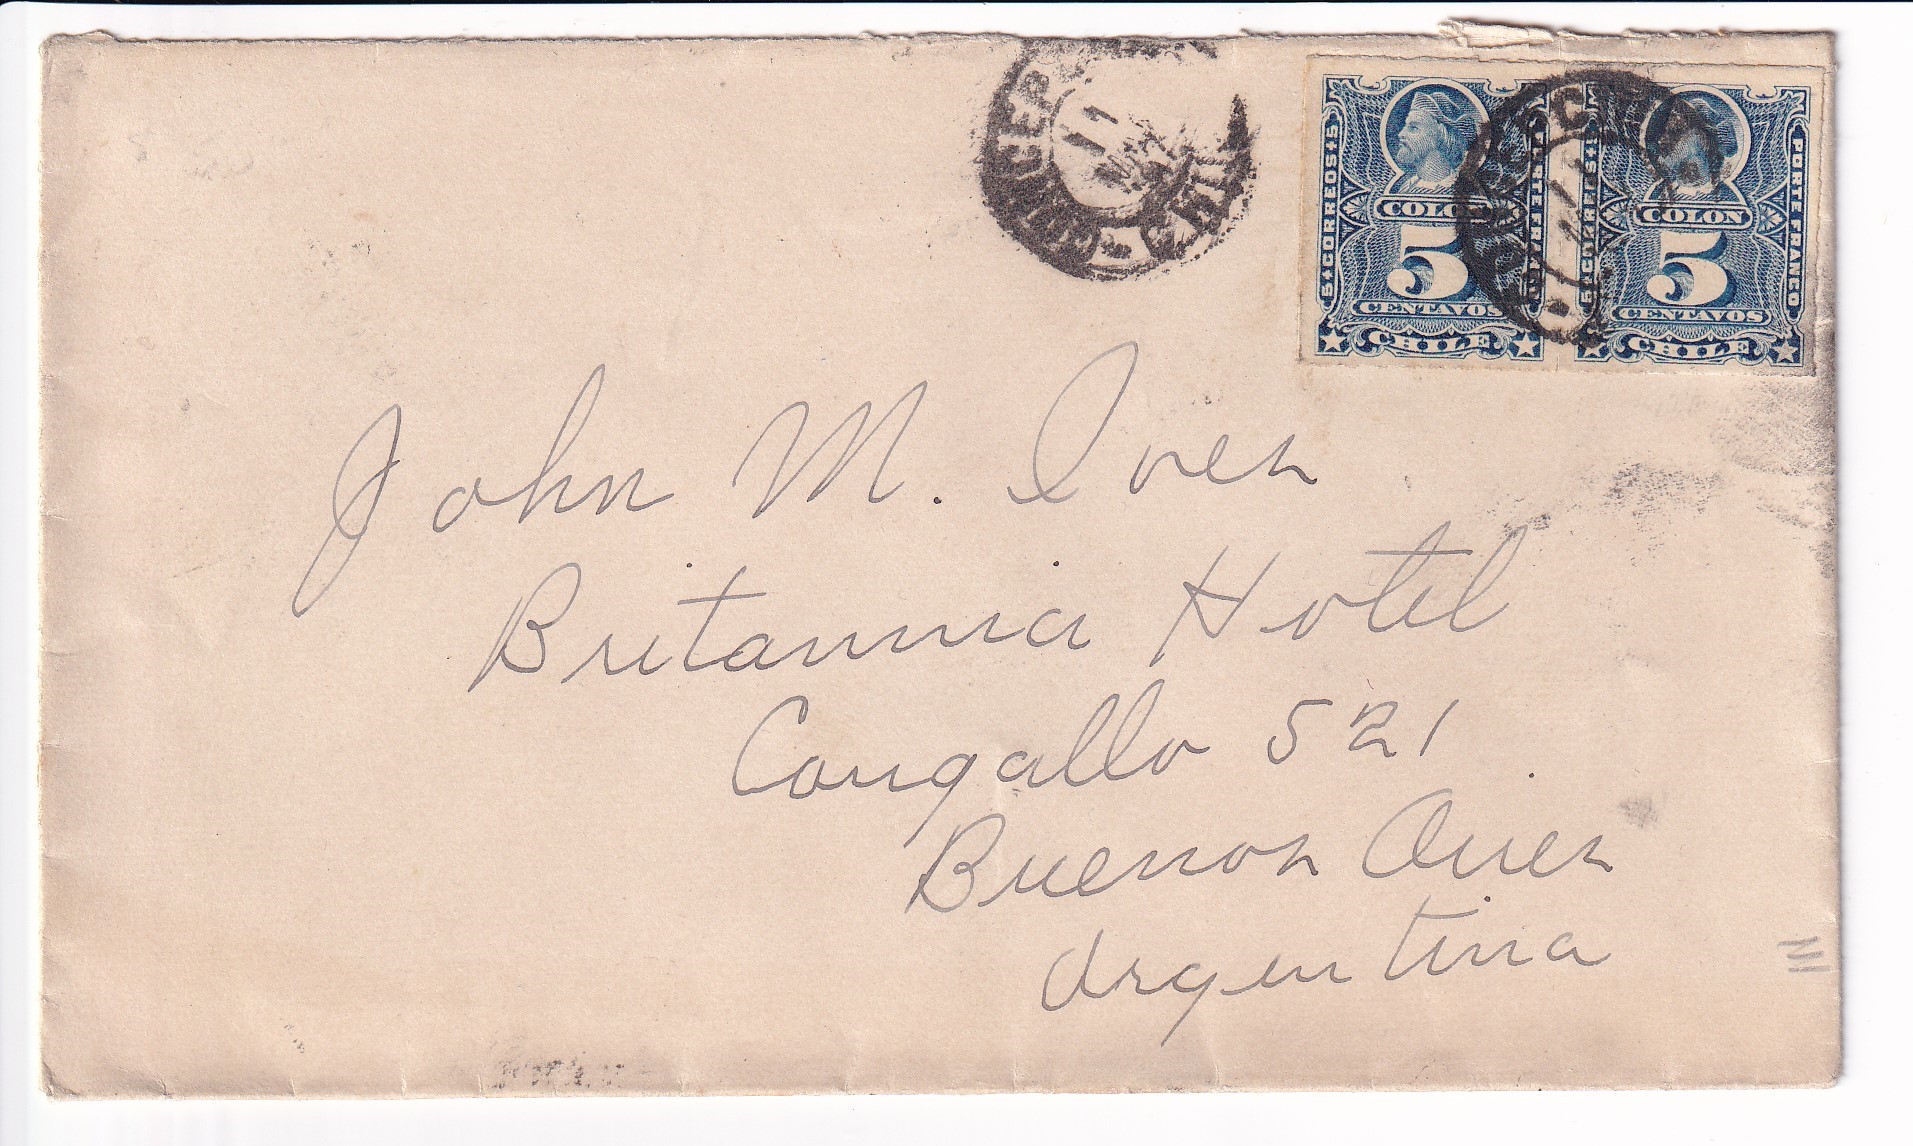 CONCEP
11
CHILE
5 CORREOS 5
COLON
5
CENTAVOS
CHILE
5 CORREOS 5
PORTE FRANCO
COLON
5
CENTAVOS
CHILE
John M. Ives
Britannia Hotel
Cangallo 521
Buenos Aires
Argentina